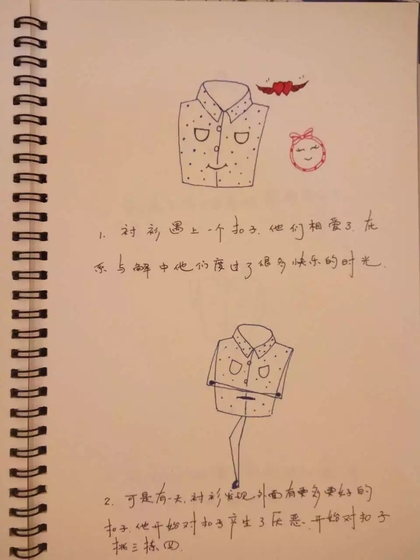 1. 衬衫遇上一个扣子,他们相爱了.在
系与解中他们度过了很多快乐的时光.
2. 可是有一天,衬衫发现,外面有更多更好的
扣子.他开始对扣子产生了厌恶.开始对扣子
挑三拣四.